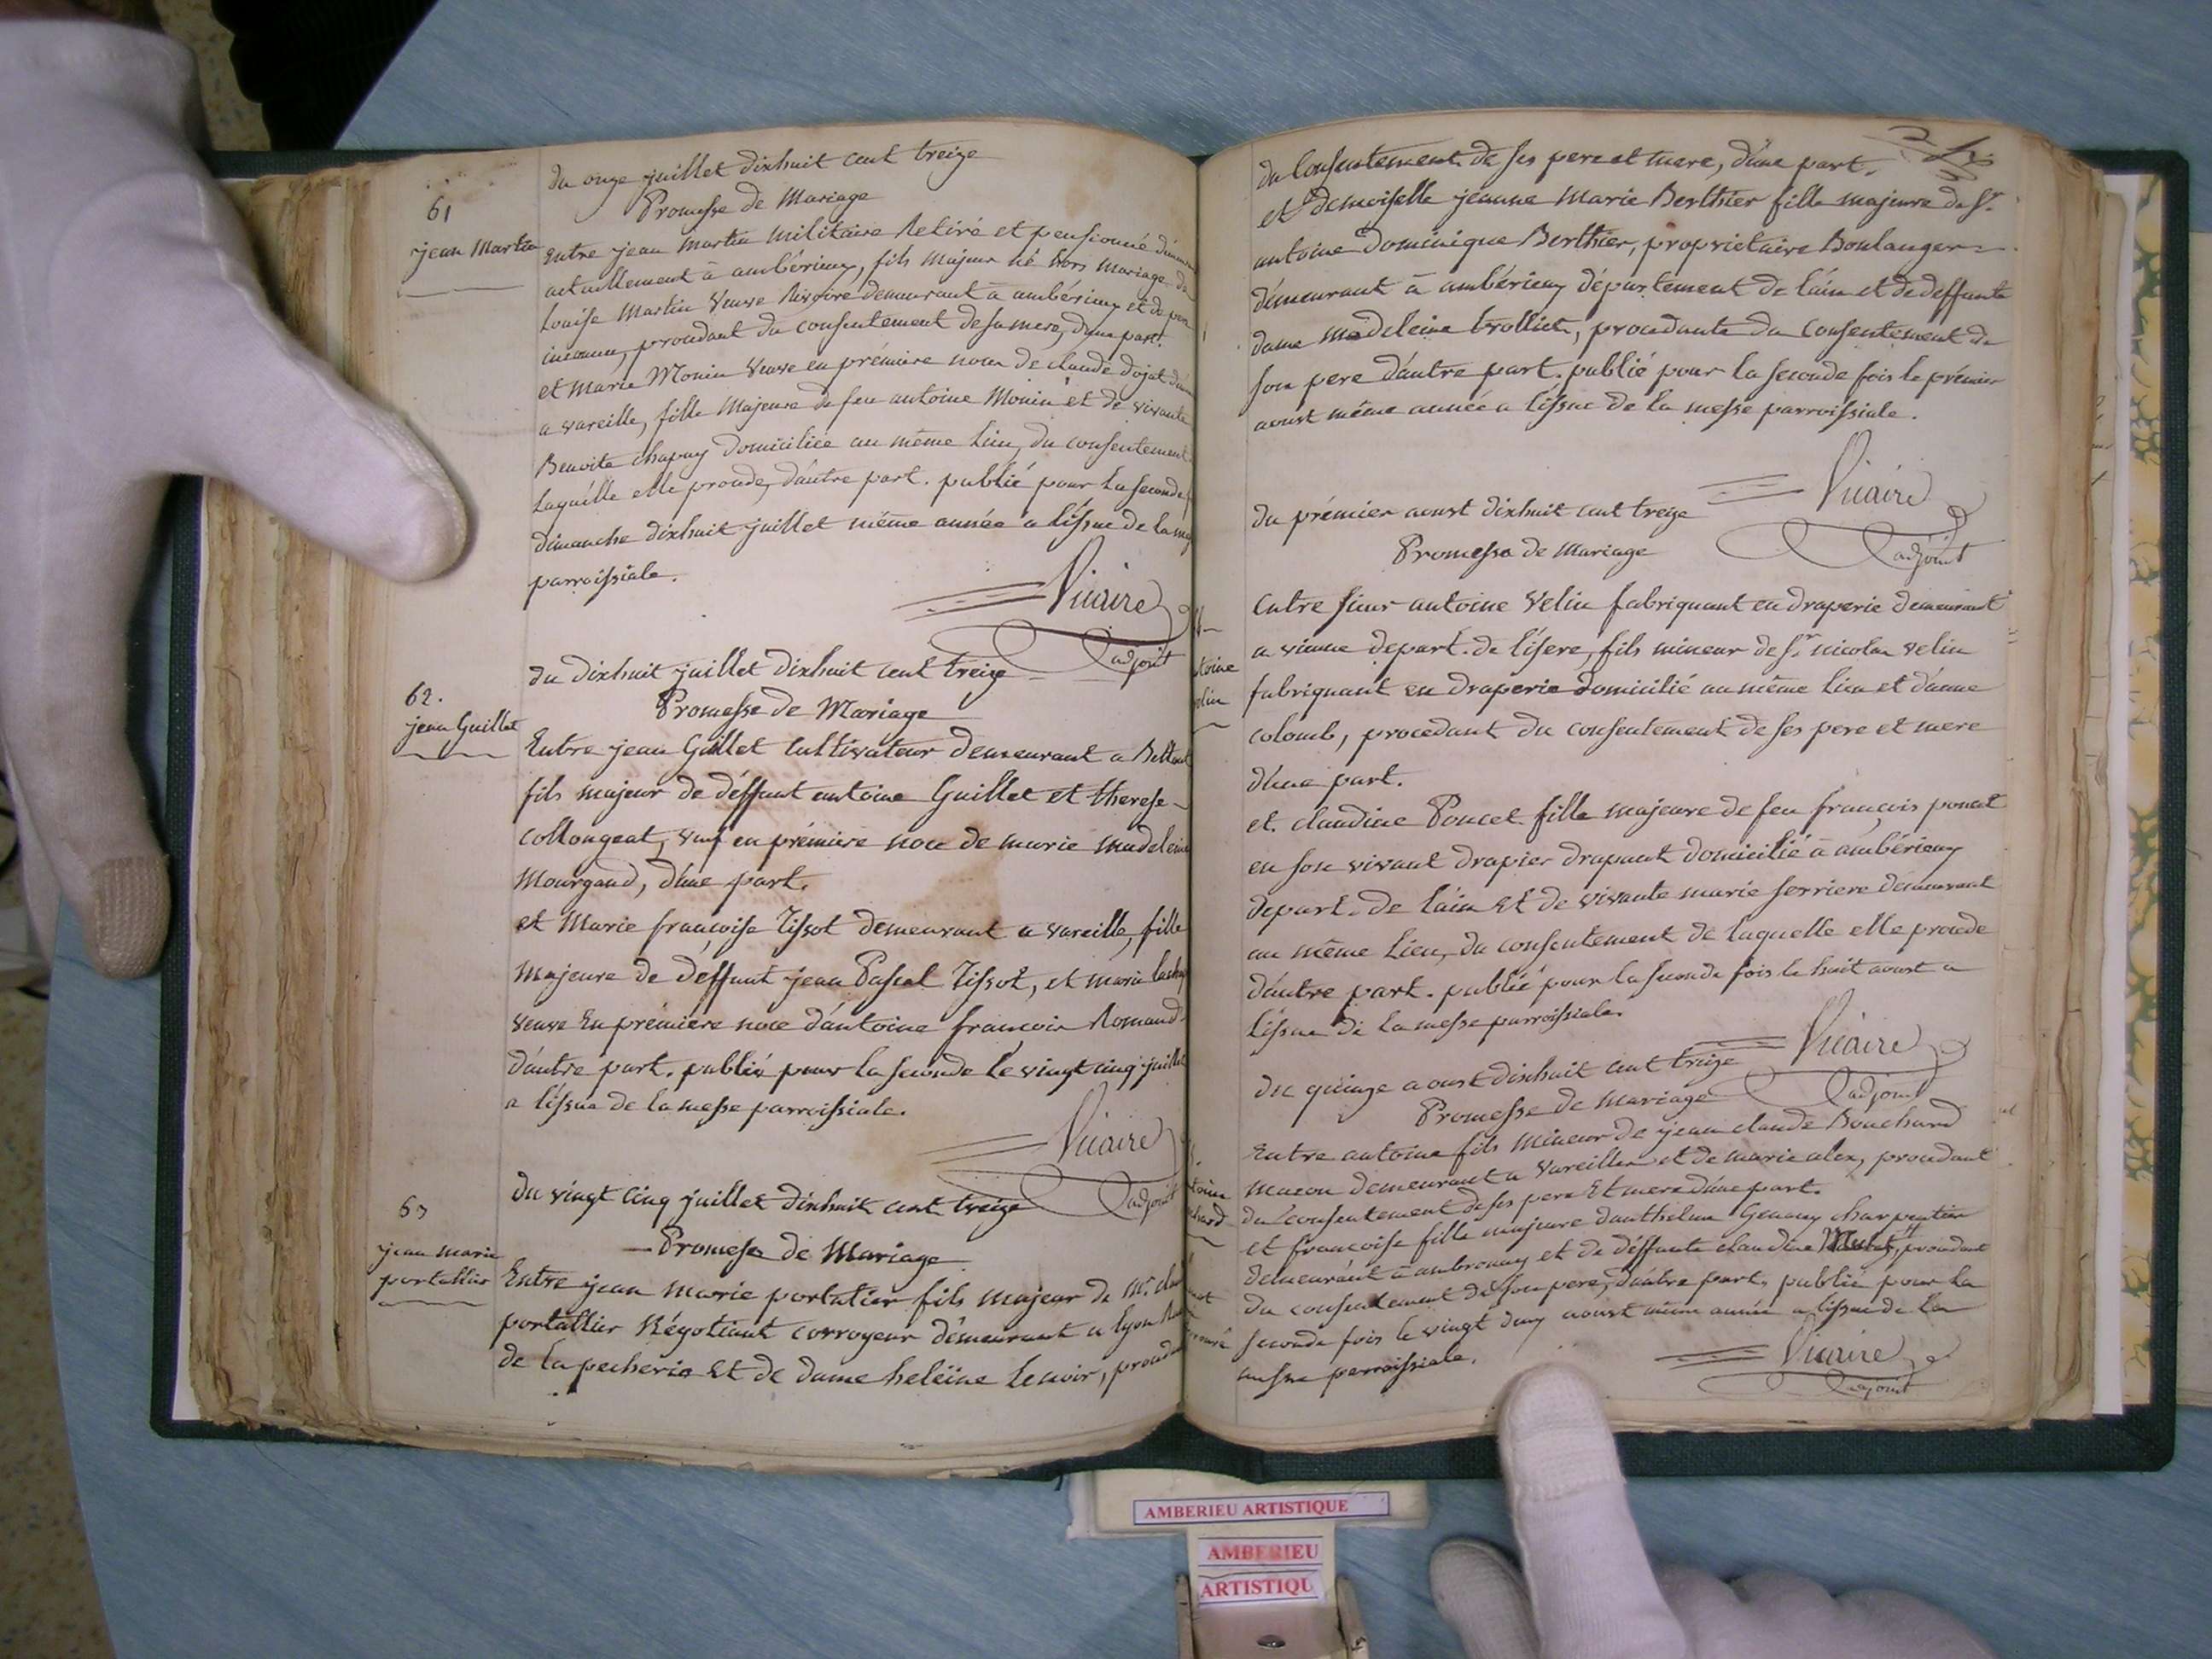 61
jean Martin
du onze juillet dixhuit cent treize
Promesse de Mariage
Entre jean Martin Militaire Retiré et pensionné
actuellement à ambérieux, fils majeur né hors mariage de
Louise Martin Veuve demeurant a ambérieux et de pere
inconnu, procedant du consentement de sa mere, d'une part.
et marie Monin Veuve en prémiere noce de claude dujat
a vareille, fille Majeure de feu antoine Monin et de vivante
Benoite chapuy domiciliée au même Lieu, du consentement
Laquélle elle procede, d'autre part. publié pour La seconde
dimanche dixhuit juillet même année a l'issue de la
parroissiale.
Vicaire
adjoint
62.
jean Guillet
du dixhuit juillet dixhuit cent treize
Promesse de Mariage
Entre jean Guillet Cultivateur demeurant a
fils majeur de déffunt antoine Guillet et therese
Collongeat, veuf en prémiere noce de marie madeleine
Mourgand, d'une part.
et Marie françoise Tissot demeurant a vareille, fille
Majeure de deffunt jean Pascal Tissot, et marie
veuve En prémiere noce d'antoine francois Romand
d'autre part. publié pour la seconde le vingt cinq juillet
a l'issue de la messe parroissiale.
Vicaire
adjoint
63
jean marie
portallier
du vingt cinq juillet dixhuit cent treize
Promesse de Mariage
Entre jean marie portalier fils majeur de Mr.
portallier Négotiant corroyeur démeurant a lyon
de la pecherie Et de dame heléine Lenoir,
du Consentement de ses pere et mere, d'une part.
et demoiselle jeanne Marie Berthier fille majeure de Sr.
antoine Dominique Berthier, proprietaire Boulanger
démeurant à ambérieux département de l'ain et de deffunte
dame madeleine trolliet, procedante du Consentement de
son pere d'autre part. publié pour la seconde fois le prémier
aoust même année a l'issue de la messe parroissiale.
Vicaire
adjoint
du prémier aoust dixhuit cent treize
Promesse de Mariage
Entre sieur antoine Velin fabriquant en draperie demeurant
a vienne depart. de l'isere, fils mineur de Sr. nicolas velin
fabriquant en draperie domicilié au même lieu et d'anne
colomb, procedant du consentement de ses pere et mere
d'une part.
et claudine Poncet fille majeure de feu françois poncet
en son vivant drapier drapant domicilié à ambérieux
depart. de l'ain Et de vivante marie ferriere demeurant
au même Lieu, du consentement de laquelle elle procede
d'autre part. publié pour la seconde fois le huit aoust a
l'issue de la messe parroissiale.
Vicaire
adjoint
du quinze aoust dixhuit cent treize
Promesse de Mariage
Entre antoine fils mineur de jean claude Bouchard
macon demeurant a Vareilles et de marie alex, procedant
du Consentement de ses pere Et mere d'une part.
et francoise fille majeure d'anthelme Genaux charpentier
demeurant à ambronay et de déffunte claudine procedant
du consentement de son pere, d'autre part, publié pour la
seconde fois le vingt deux aoust même année a l'issue de la
messe parroissiale.
Vicaire
adjoint
AMBERIEU ARTISTIQUE
AMBERIEU
ARTISTIQU